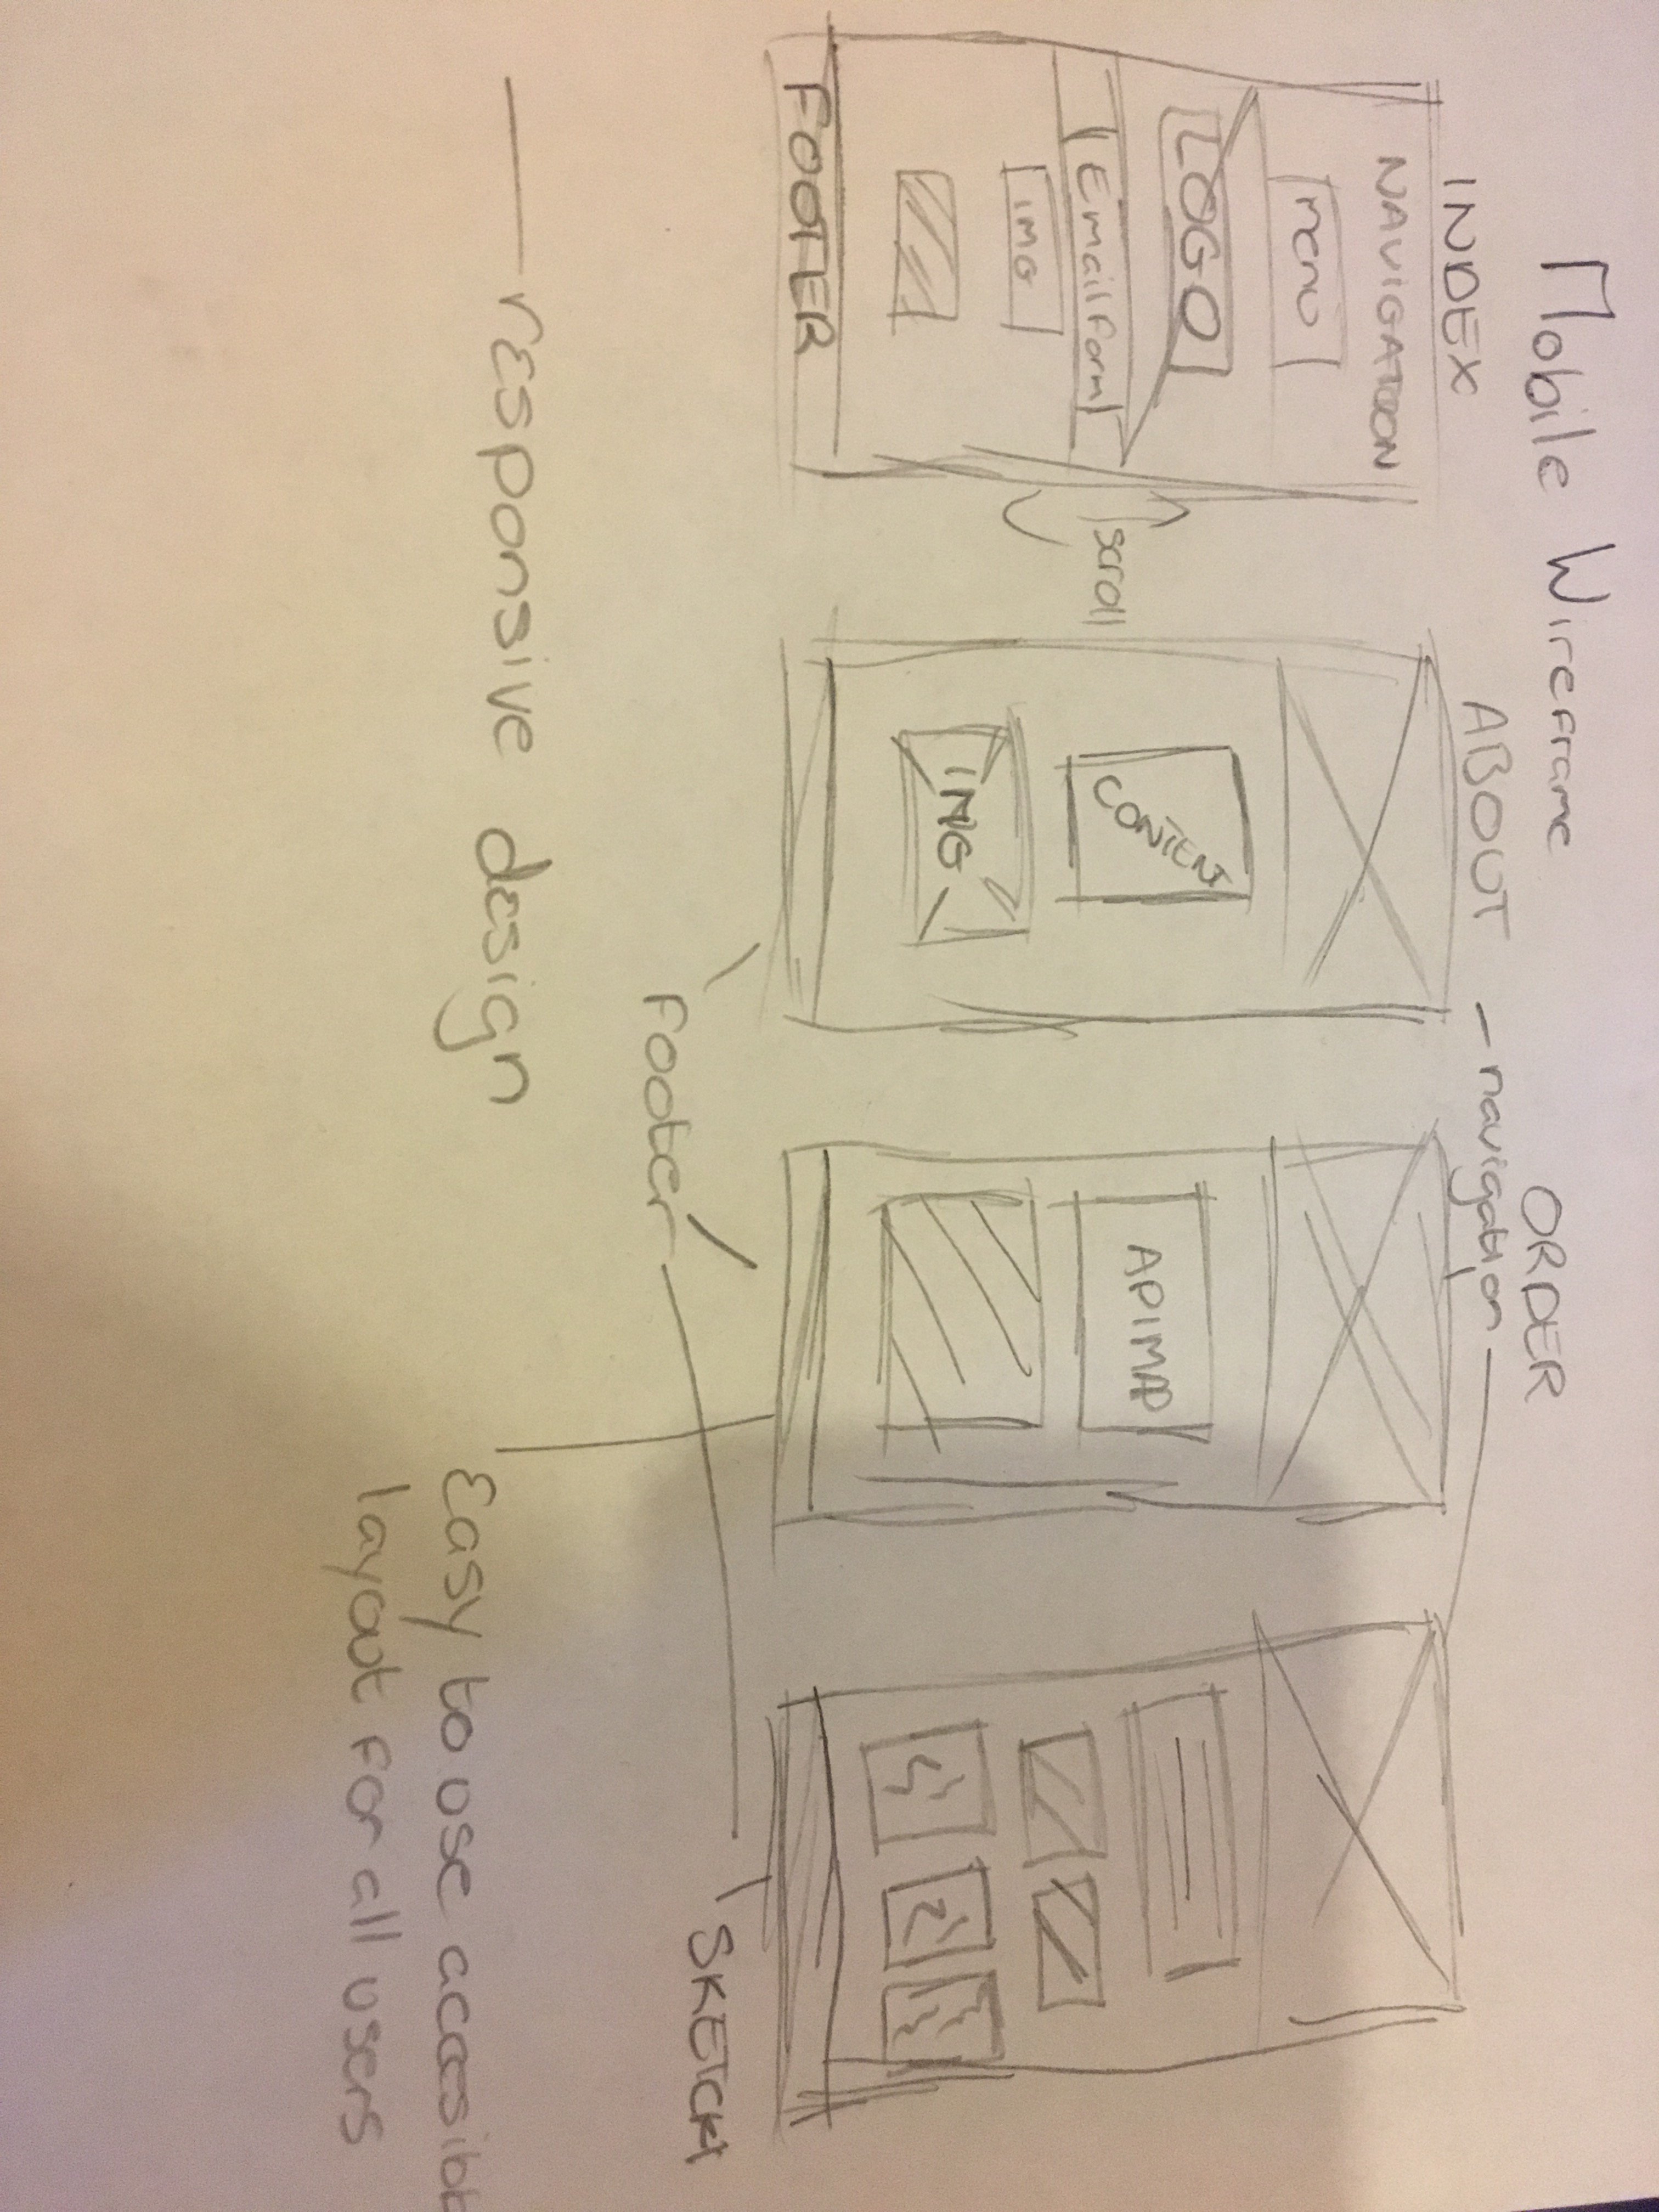 Mobile Wireframe
INDEX
NAVIGATION
menu
LOGO
Email form
IMG
FOOTER
scroll
ABOUT
CONTENT
IMG
- navigation
ORDER
API MAP
Footer
SKETCH
responsive design
Easy to use accessib
layout for all users